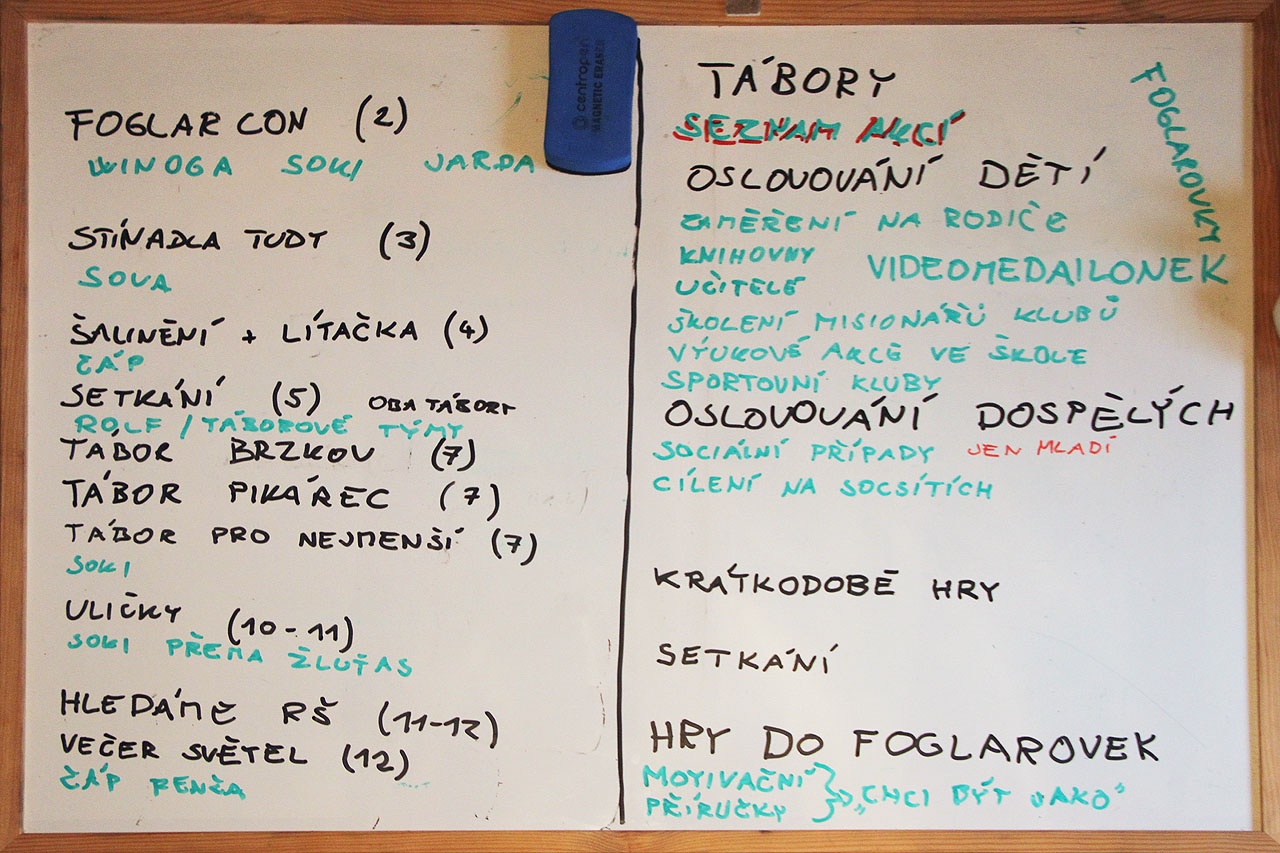 centropen
MAGNETIC ERASER
FOGLARCON (2)
WINOGA SOKI JARDA
STÍNADLA TUDY (3)
SOVA
ŠALINĚNÍ + LÍTAČKA (4)
ČÁP
SETKÁNÍ (5) OBA TÁBORY
ROLF / TÁBOROVÉ TÝMY
TÁBOR BRZKOV (7)
TÁBOR PIKÁREC (7)
TÁBOR PRO NEJMENŠÍ (7)
SOKI
ULIČKY (10-11)
SOKI PŘEMA ŽLUŤAS
HLEDÁME RŠ (11-12)
VEČER SVĚTEL (12)
ČÁP BENČA
TÁBORY
SEZNAM AKCÍ
OSLOVOVÁNÍ DĚTÍ
ZAMĚŘENÍ NA RODIČE
KNIHOVNY
VIDEOMEDAILONEK
UČITELÉ
ŠKOLENÍ MISIONÁŘŮ KLUBŮ
VÝUKOVÉ AKCE VE ŠKOLE
SPORTOVNÍ KLUBY
OSLOVOVÁNÍ DOSPĚLÝCH
SOCIÁLNÍ PŘÍPADY JEN MLADÍ
CÍLENÍ NA SOCSÍTÍCH
KRÁTKODOBÉ HRY
SETKÁNÍ
HRY DO FOGLAROVEK
MOTIVAČNÍ
PŘÍRUČKY „CHCI BÝT JAKO"
FOGLAROVKY